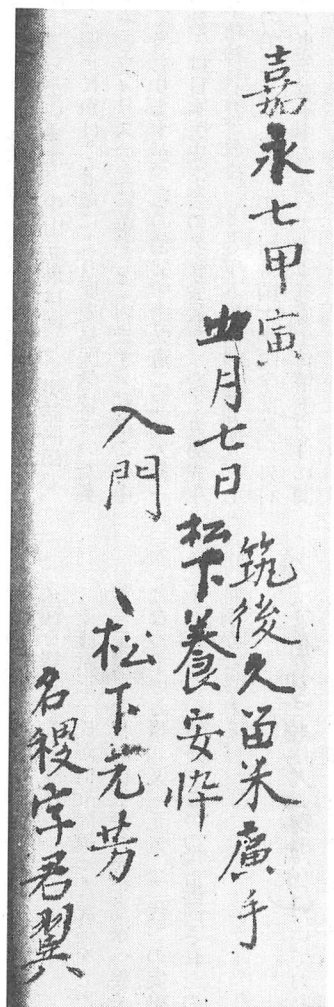 嘉永七甲寅
月七日
入門
筑後久留米廣手
松下養安悴
松下元芳
名稷字君翼